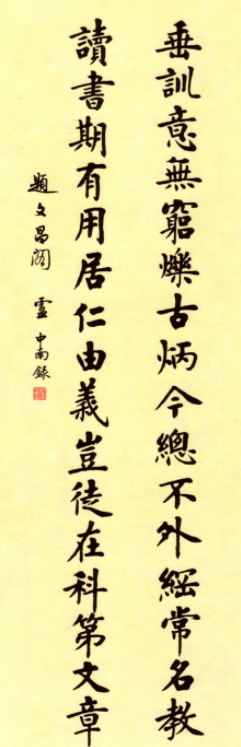 垂訓意無窮爍古炳今總不外綱常名教
讀書期有用居仁由義豈徒在科第文章
題文昌閣 靈中南錄